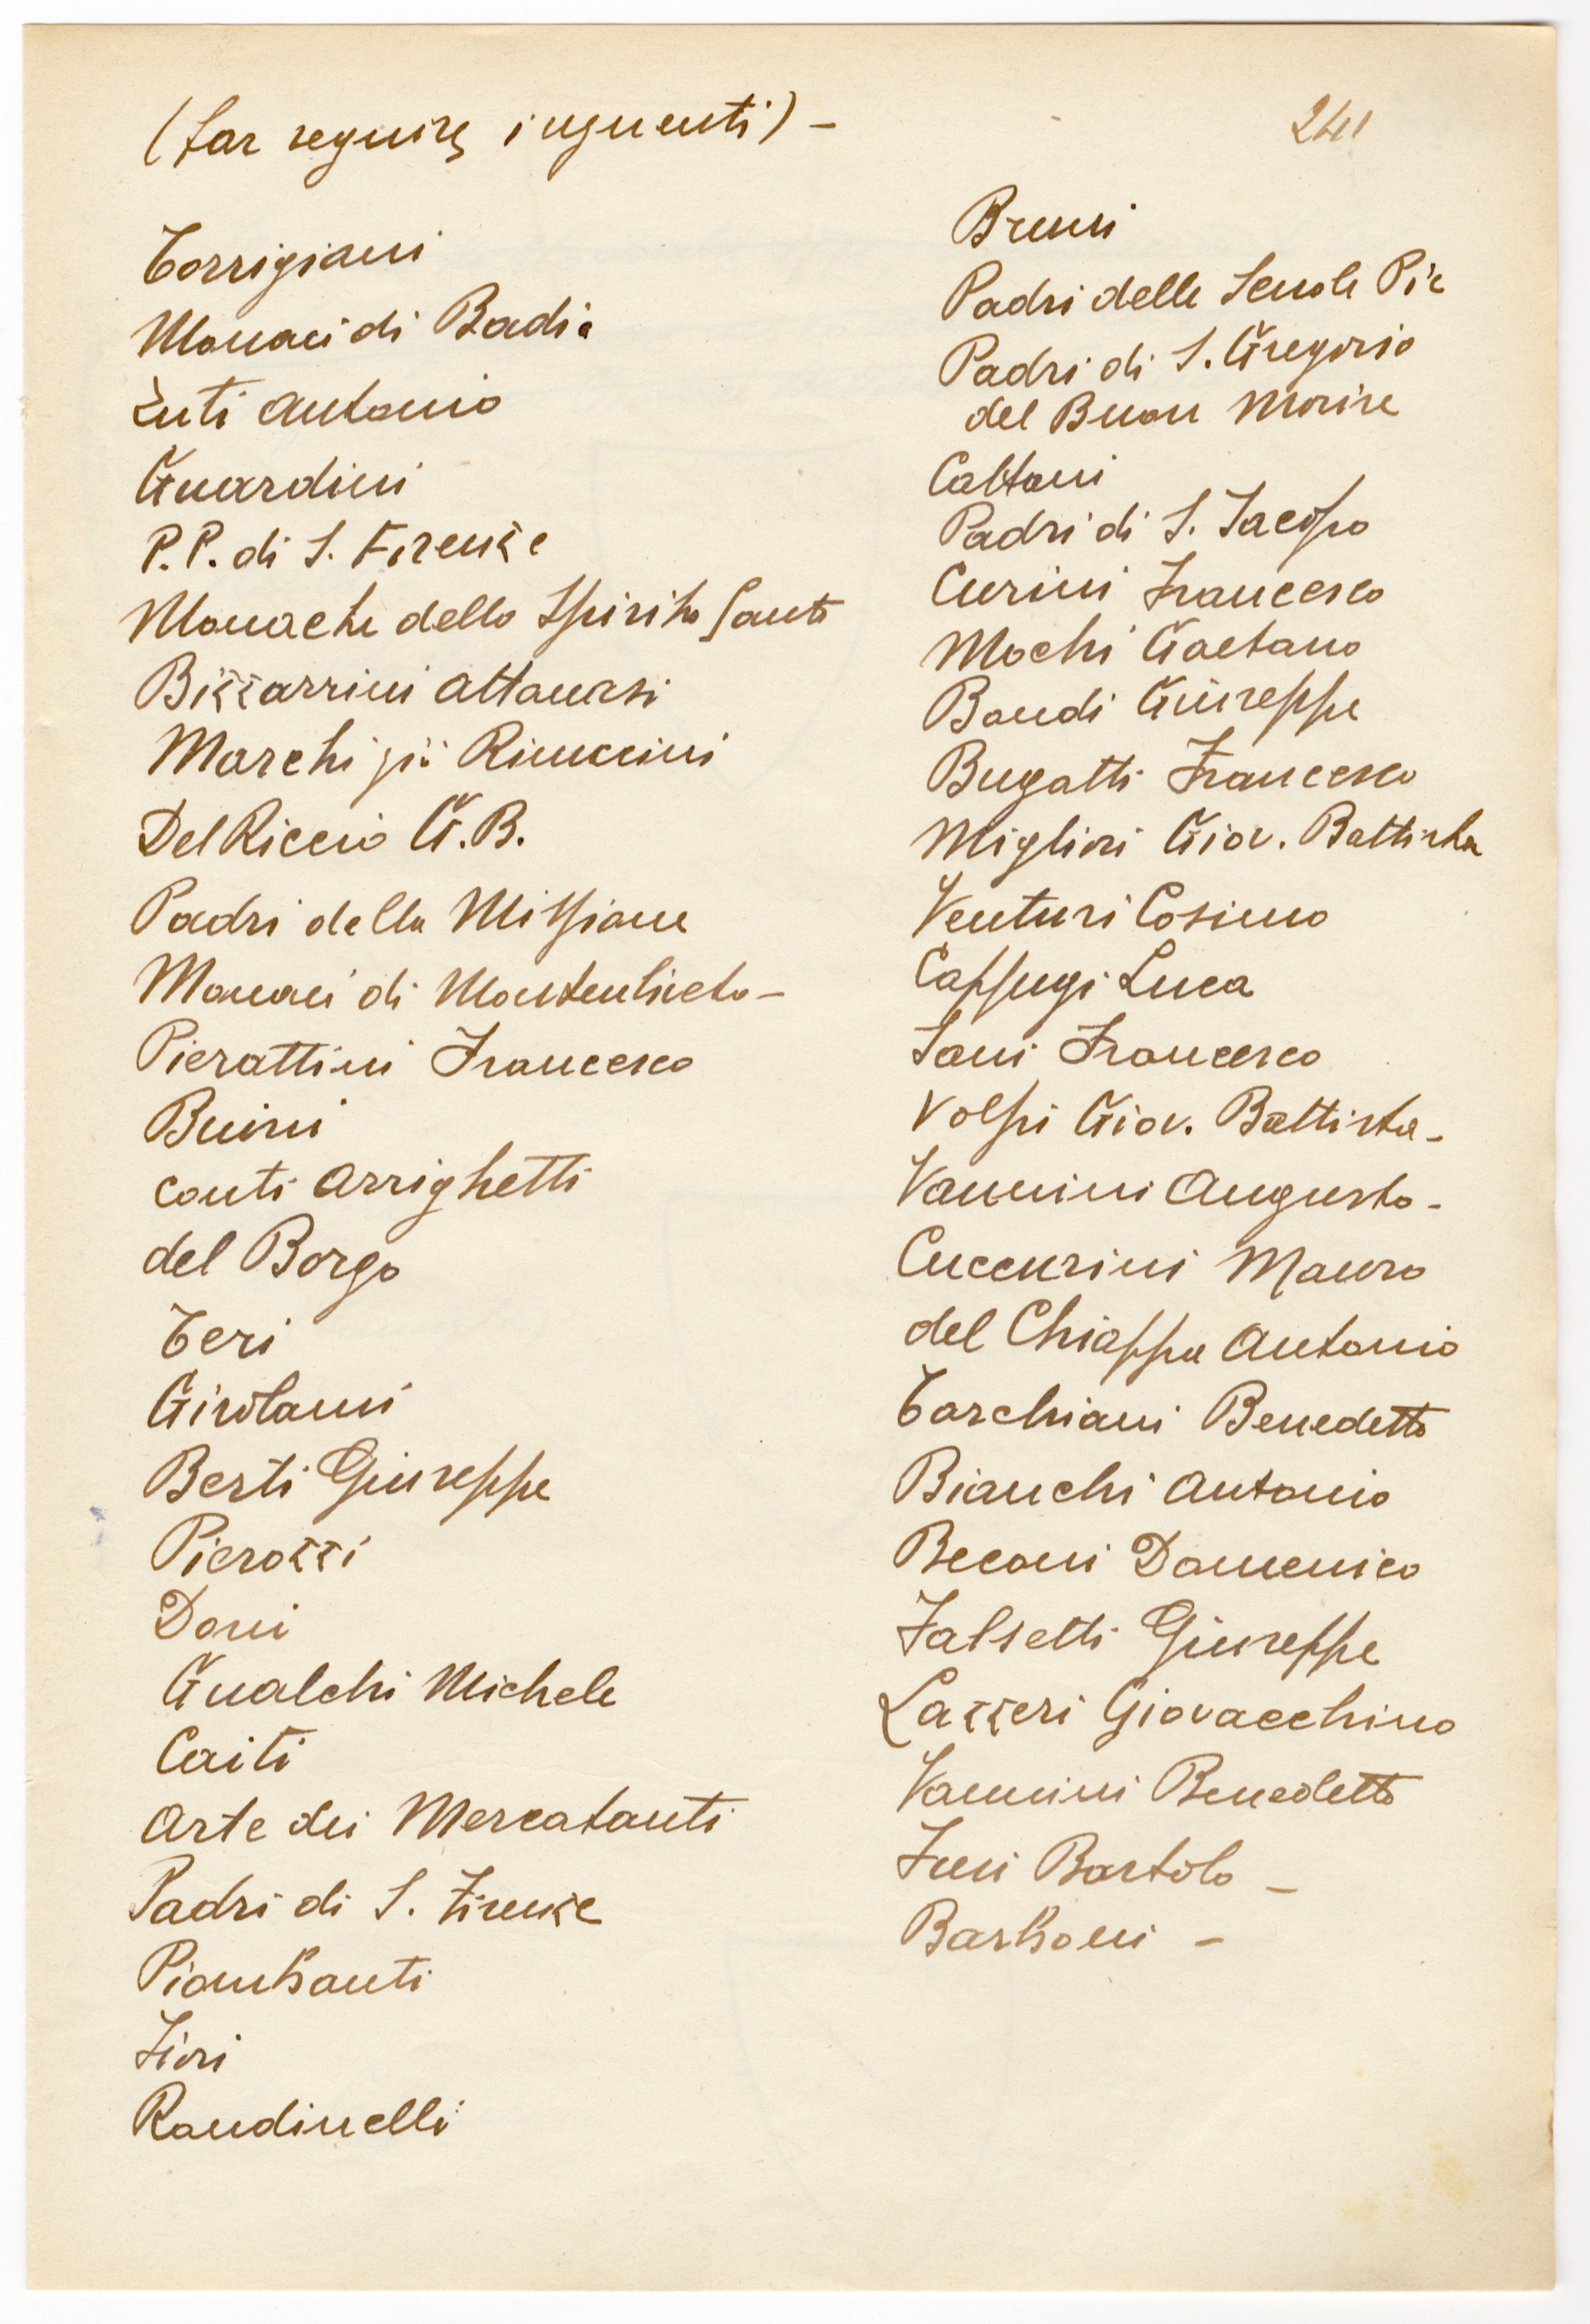 (far seguire i seguenti) -
241
Torrigiani
Monaci di Badia
Luti Antonio
Guardini
P.P. di S. Firenze
Monache dello Spirito Santo
Bizzarrini Attanasi
Marchi già Rinuccini
Del Riccio G.B.
Padri della Missione
Monaci di Monteoliveto -
Pierattini Francesco
Buini
Conti Arrighetti
del Borgo
Teri
Girolami
Berti Giuseppe
Pierozzi
Doni
Gualchi Michele
Caiti
Arte dei Mercatanti
Padri di S. Firenze
Piombanti
Fiori
Rondinelli
Bruni
Padri delle Scuole Pie
Padri di S. Gregorio
del Buon Morire
Cattani
Padri di S. Jacopo
Curini Francesco
Mochi Gaetano
Bandi Giuseppe
Bugatti Francesco
Migliori Giov. Battista
Venturi Cosimo
Cappugi Luca
Sani Francesco
Volpi Giov. Battista -
Vannini Augusto -
Cuccurini Mauro
del Chiappa Antonio
Tarchiani Benedetto
Bianchi Antonio
Beconi Domenico
Falsetti Giuseppe
Lazzeri Giovacchino
Vannini Benedetto
Fusi Bartolo -
Barboni -